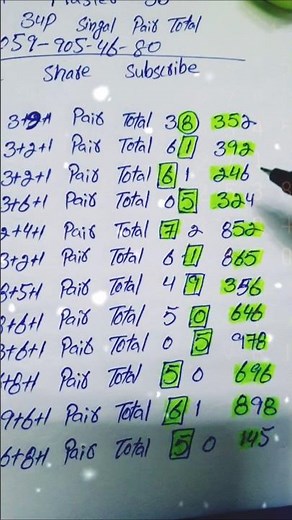 3up Singal Pair Total
059-905-46-80
Share Subscribe
3+9+1 Pair Total 38 352
3+2+1 Pair Total 61 392
3+2+1 Pair Total 61 246
3+6+1 Pair Total 05 324
2+4+1 Pair Total 72 852
3+2+1 Pair Total 61 865
8+5+1 Pair Total 49 356
8+6+1 Pair Total 50 646
3+6+1 Pair Total 05 978
+8+1 Pair Total 50 696
9+6+1 Pair Total 61 898
6+8+1 Pair Total 50 145